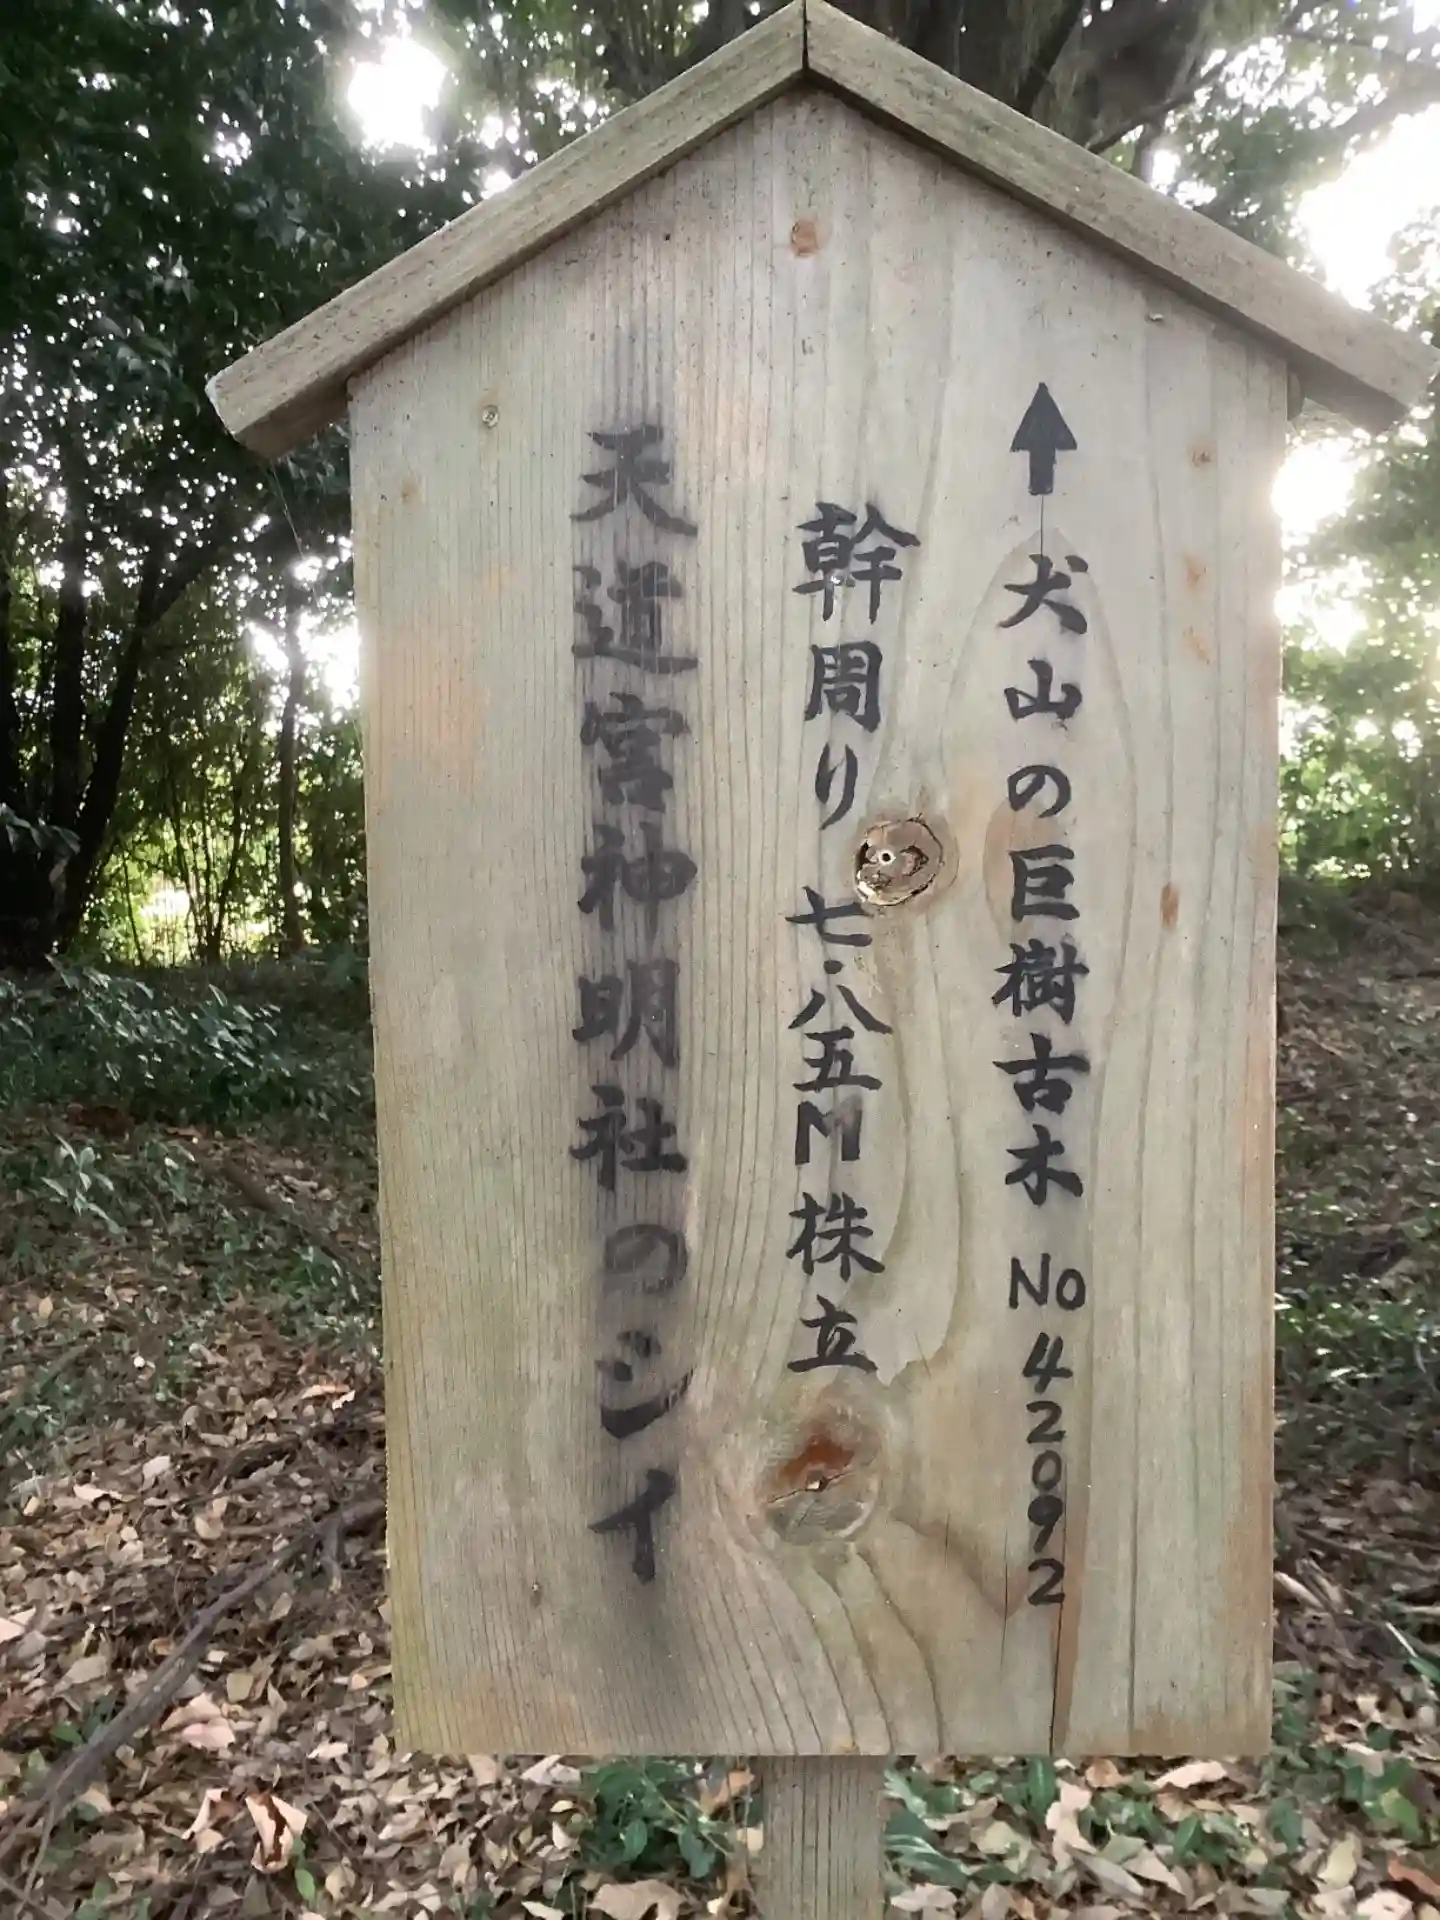 ↑犬山の巨樹古木 No 42092
幹周り 七.八五M株立
天道宮神明社のシイ